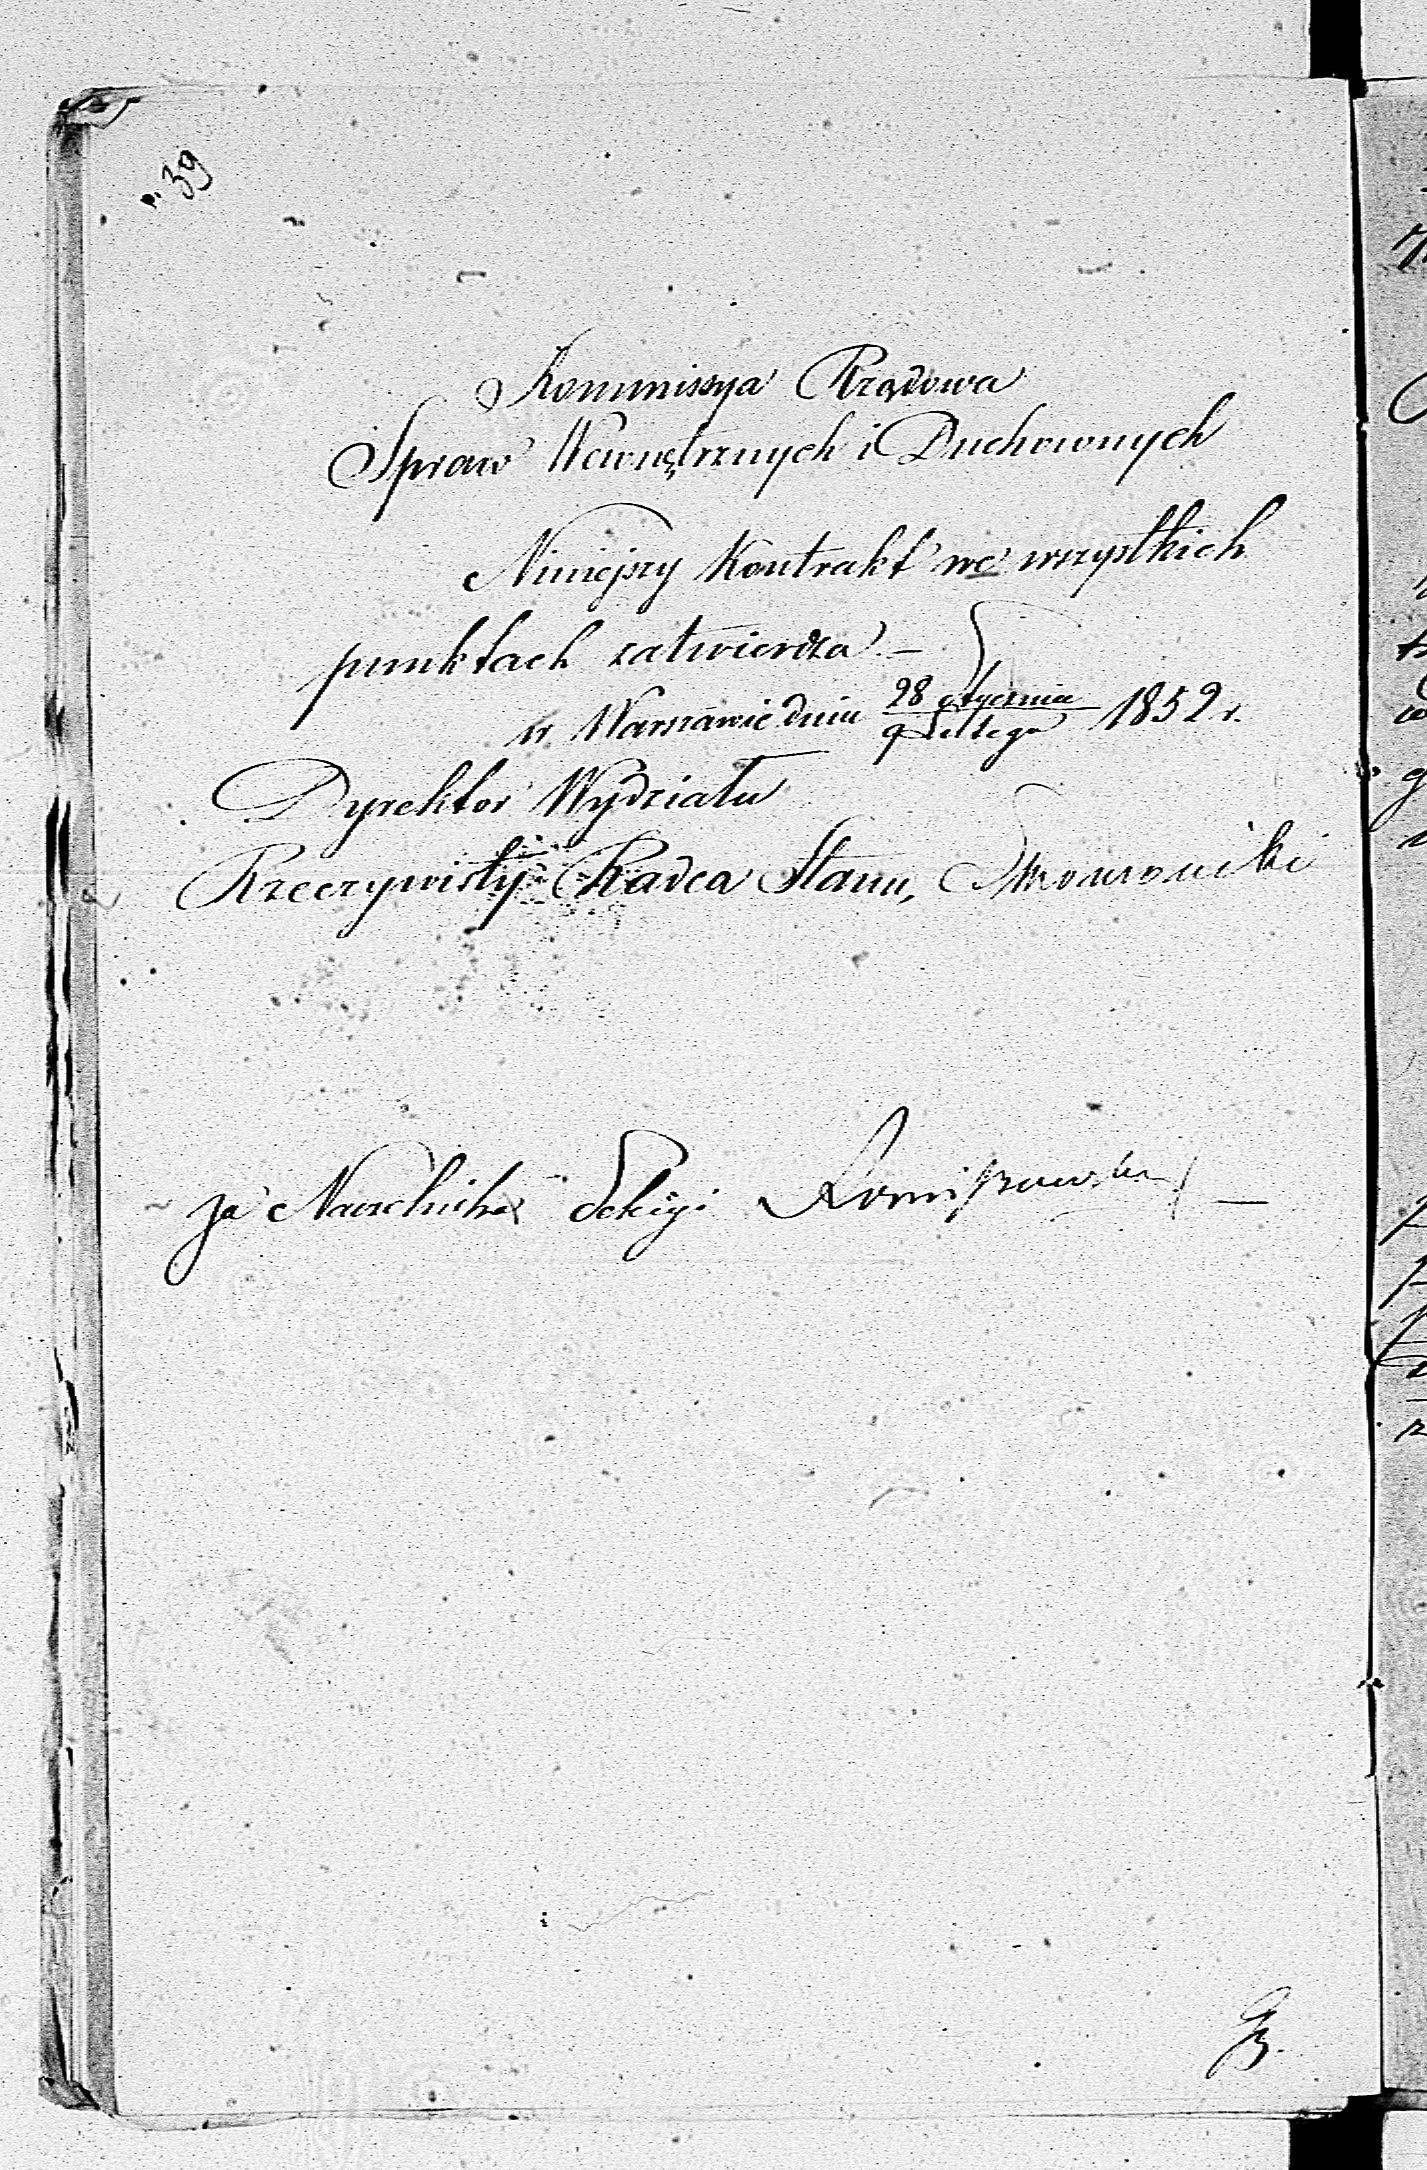 p. 39
Kommissya Rządowa
Spraw Wewnętrznych i Duchownych
Niniejszy Kontrakt we wszystkich
punktach zatwierdza. —
w Warszawie dniu 28 Stycznia / 9 Lutego 1852 r.
Dyrektor Wydziału
Rzeczywisty Radca Stanu,
Za Naczelnika Sekcyi